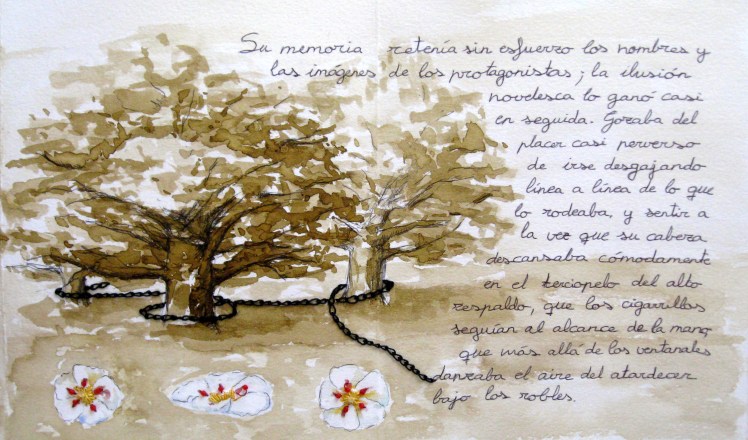 Su memoria retenía sin esfuerzo los nombres y
las imágenes de los protagonistas; la ilusión
novelesca lo ganó casi
en seguida. Gozaba del
placer casi perverso
de irse desgajando
línea a línea de lo que
lo rodeaba, y sentir a
la vez que su cabeza
descansaba cómodamente
en el terciopelo del alto
respaldo, que los cigarrillos
seguían al alcance de la mano,
que más allá de los ventanales
danzaba el aire del atardecer
bajo los robles.